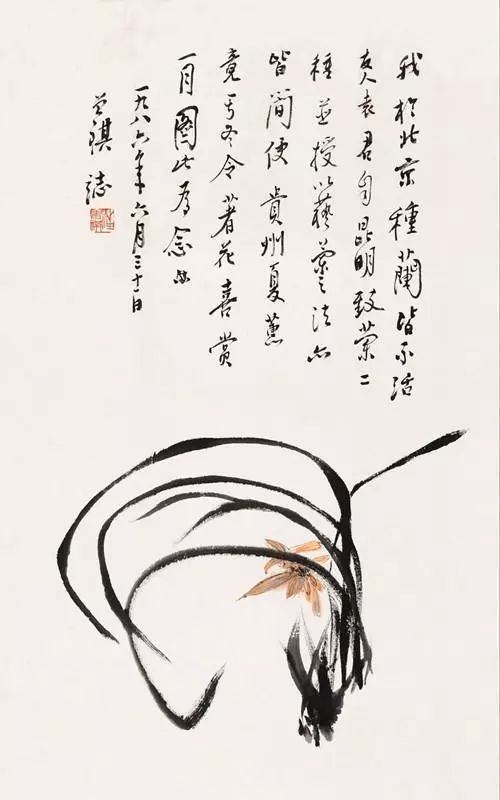 我於北京種蘭皆不活
友人袁君自昆明致蘭二
種並授以藝蘭之法亦
皆簡便貴州夏蕙
竟于冬令著花喜賞
一月圖此爲念
一九八六年六月三十一日
曾祺誌